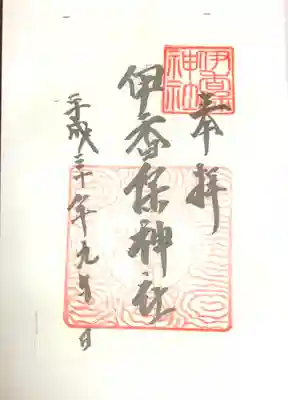 奉拝
伊香保神社
平成三十年九月 日
伊香保
神社